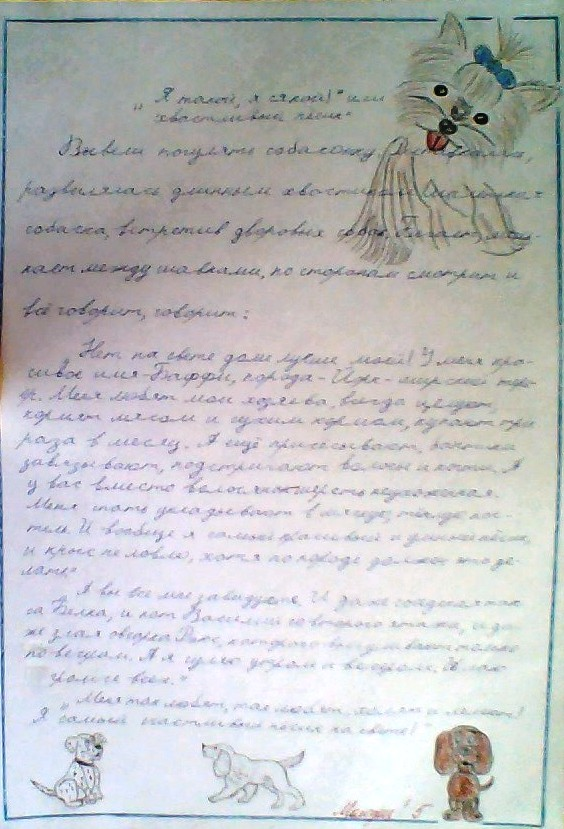 „Я такой, я сякой!" или
хвастливый песик"
Вывели погулять собачонку.
развилялась длинным хвостиком маленькая
собачка, встретив дворовых собак. Бегает,
кает между шавками, по сторонам смотрит и
всё говорит, говорит:
„Нет на свете доли лучше моей! У меня кра-
сивое имя - Баффи, порода - Йорк-ширский терь-
ер. Меня любят мои хозяева, всегда целуют,
кормят мясом и сухим кормом, купают три
раза в месяц. А ещё причесывают, бантики
завязывают, подстригают волосы и когти. А
у вас вместо волос шерсть неухоженная.
Меня спать укладывают в мягкую, теплую пос-
тель. И вообще я самый красивый и
и крыс не ловлю, хотя по породе должен это де-
лать"
„А вы все мне завидуете. И даже соседская
Белка, и кот Василий со второго этажа, и да-
же злая овчарка Рекс, которого выгуливают только
по вечерам. А я гуляю утром и вечером. И лаю
громче всех."
„Меня так любят, так любят, холят и лелеют!
Я самый счастливый песик на свете!"